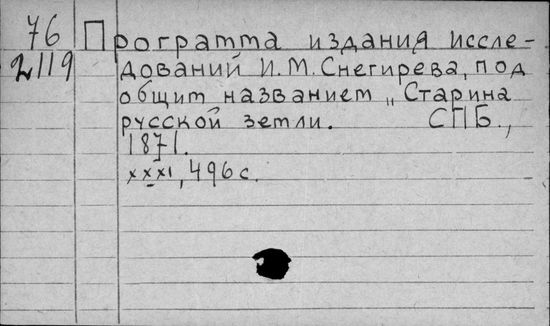 76 Программа издания иссле-
2119 дований И.М. Снегирева, под
общим названием „Старина
русской земли. СПБ.,
1871.
XXXI, 496 с.